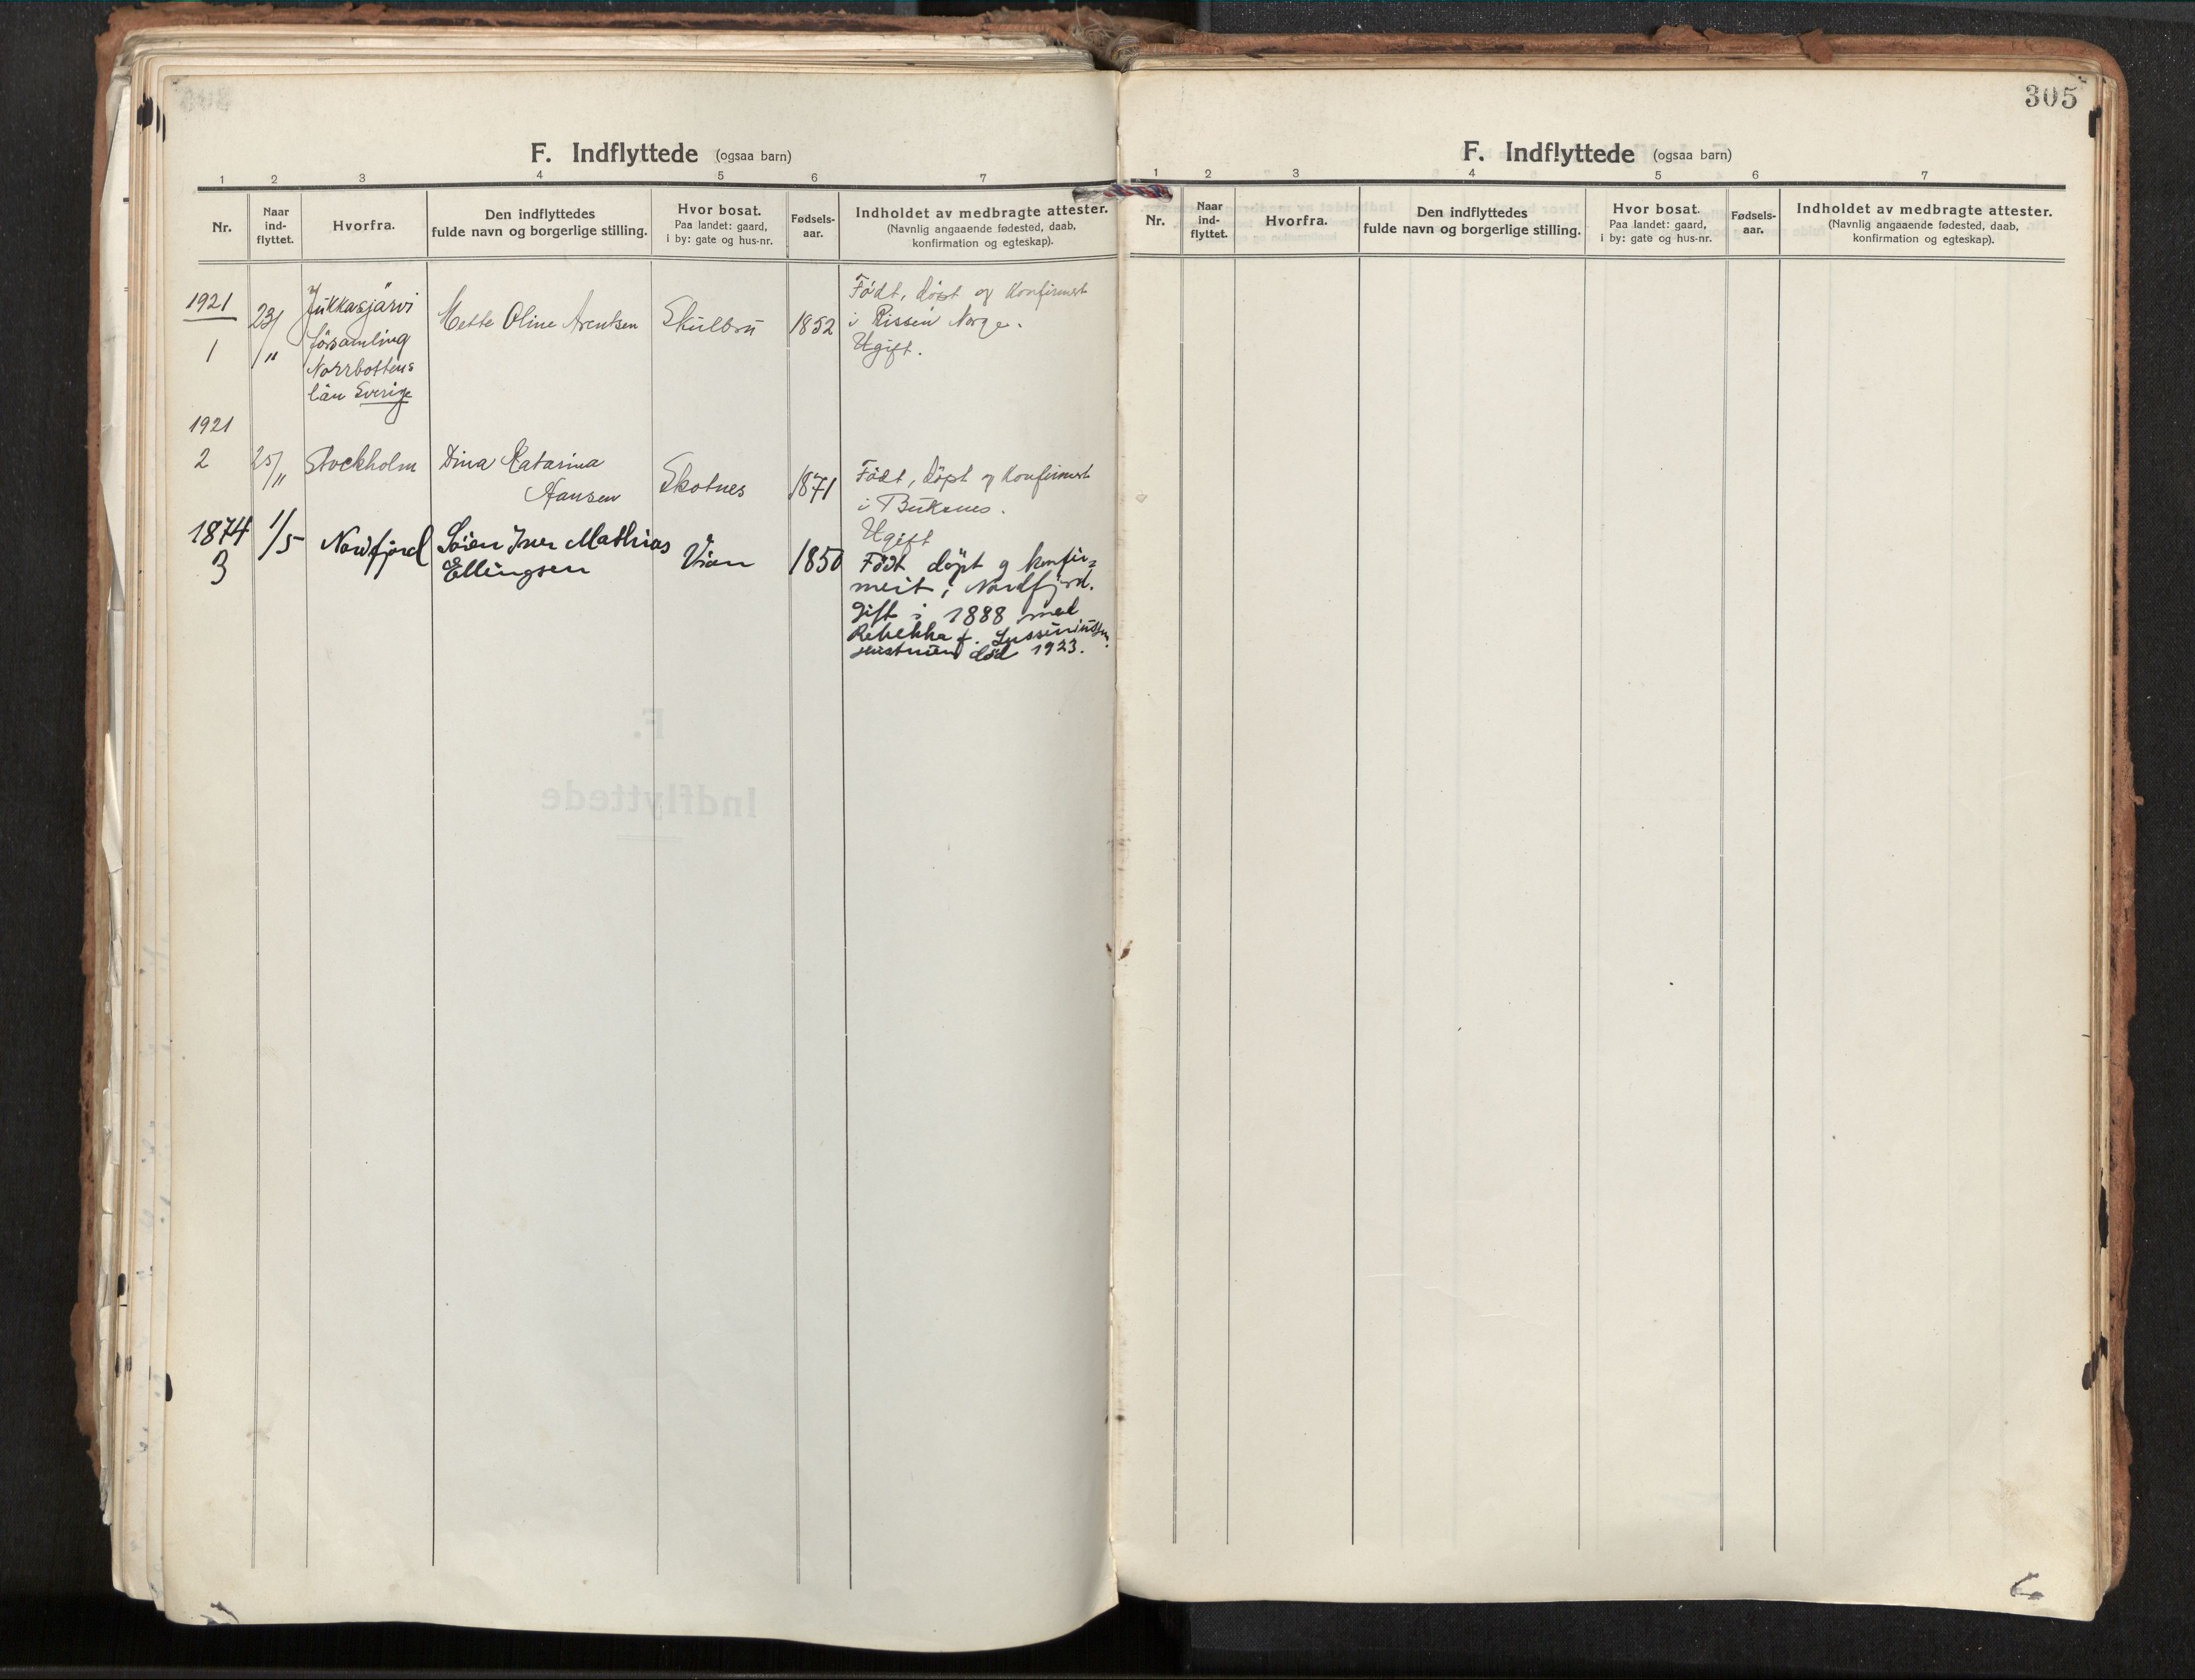 305
F. Indflyttede (ogsaa barn)
1 2 3 4 5 6 7
Nr.
Naar ind-flyttet.
Hvorfra.
Den indflyttedes
fulde navn og borgerlige stilling.
Hvor bosat.
Paa landet: gaard,
i by: gate og hus-nr.
Fødsels-
aar.
Indholdet av medbragte attester.
(Navnlig angaaende fødested, daab,
konfirmation og egteskap).
1921
1
23/11
Jukkasjärvi
församling
Norrbottens
län Sverige
Mette Oline Arentsen
Skulbru
1852
Födt, döpt og Konfirmert
i Rissen Norge.
Ugift.
1921
2
25/11
Stockholm
Dina Katarina
Hansen
Skotnes
1871
Födt, döpt og Konfirmert
i Buksnes.
Ugift
1874
3
1/5
Nordfjord
Mathias
Ellingsen
1850
Födt döpt og konfir=
mert i Nordfjord.
Gift i 1888 med
Rebekka f.
Hustruen död 1923.
F. Indflyttede (ogsaa barn)
1 2 3 4 5 6 7
Nr.
Naar
ind-
flyttet.
Hvorfra.
Den indflyttedes
fulde navn og borgerlige stilling.
Hvor bosat.
Paa landet: gaard,
i by: gate og hus-nr.
Fødsels-
aar.
Indholdet av medbragte attester.
(Navnlig angaaende fødested, daab,
konfirmation og egteskap).